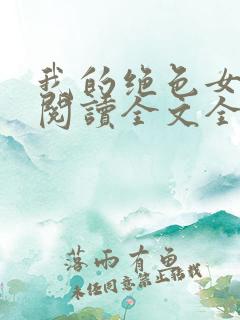 我的绝色女
閱讀全文全
落雨有魚
未经同意禁止转载